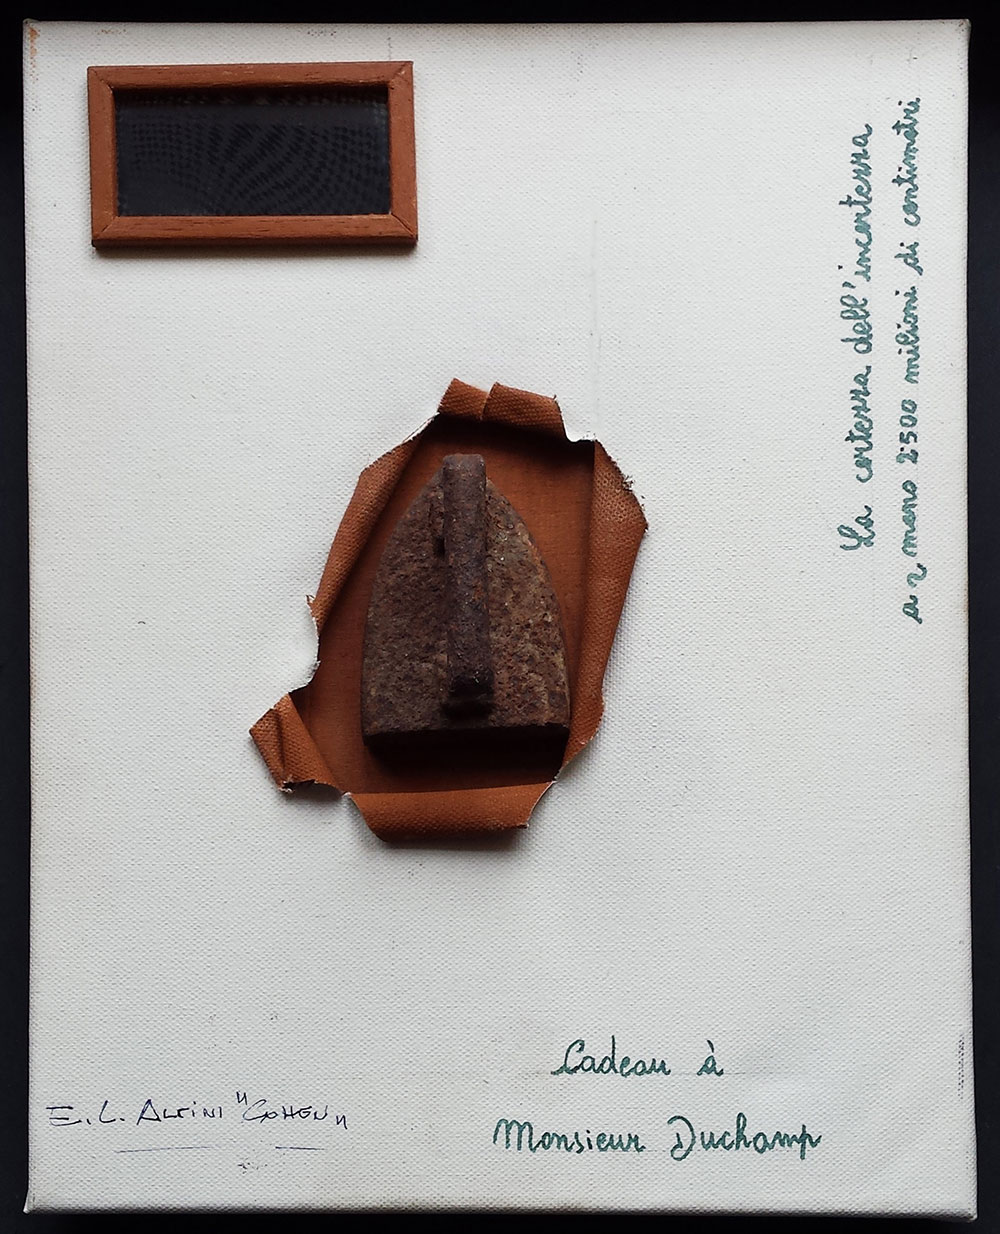 La certezza dell'incertezza
a meno 2500 milioni di centimetri
Cadeau à
Monsieur Duchamp
E. L. "Cohen"